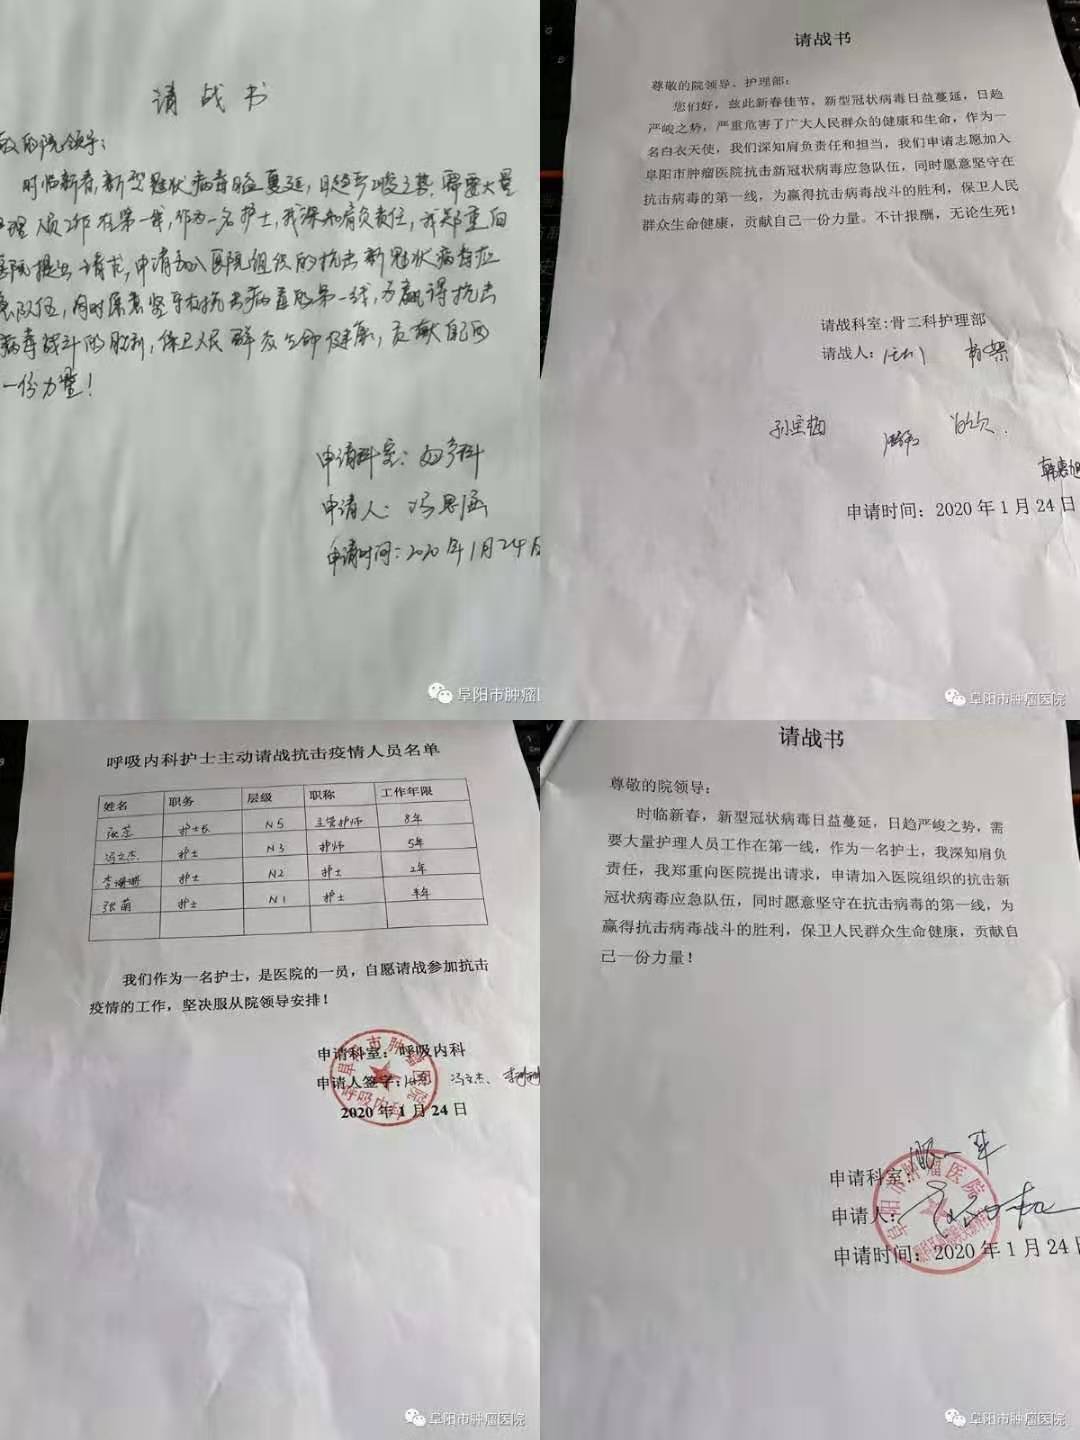 请战书
的院领导:
时临新春,新型冠状病毒日益蔓延,日趋严峻之势,需要大量
理人员工作在第一线,作为一名护士,我深知肩负责任,我郑重向
医院提出请求,申请加入医院组织的抗击新冠状病毒应
急队伍,同时愿意坚守在抗击病毒的第一线,为赢得抗击
病毒战斗的胜利,保卫人民群众生命健康,贡献自己
一份力量!
申请科室:妇产科
申请人:冯思涵
申请时间:2020年1月24日
阜阳市肿瘤医
请战书
尊敬的院领导、护理部:
您们好,兹此新春佳节,新型冠状病毒日益蔓延,日趋
严峻之势,严重危害了广大人民群众的健康和生命,作为一
名白衣天使,我们深知肩负责任和担当,我们申请志愿加入
阜阳市肿瘤医院抗击新冠状病毒应急队伍,同时愿意坚守在
抗击病毒的第一线,为赢得抗击病毒战斗的胜利,保卫人民
群众生命健康,贡献自己一份力量。不计报酬,无论生死!
请战科室:骨二科护理部
请战人:
韩惠旭
申请时间:2020年1月24日
阜阳市肿瘤医院
呼吸内科护士主动请战抗击疫情人员名单
姓名 职务 层级 职称 工作年限
护士长 N5 主管护师 8年
冯文杰 护士 N3 护师 5年
李珊珊 护士 N2 护士 2年
张萌 护士 N1 护士 半年
我们作为一名护士,是医院的一员,自愿请战参加抗击
疫情的工作,坚决服从院领导安排!
申请科室:呼吸内科
申请人签字: 冯文杰、李珊珊
2020年1月24日
阜阳市肿瘤医院
呼吸内科
阜阳市肿瘤医院
请战书
尊敬的院领导:
时临新春,新型冠状病毒日益蔓延,日趋严峻之势,需
要大量护理人员工作在第一线,作为一名护士,我深知肩负
责任,我郑重向医院提出请求,申请加入医院组织的抗击新
冠状病毒应急队伍,同时愿意坚守在抗击病毒的第一线,为
赢得抗击病毒战斗的胜利,保卫人民群众生命健康,贡献自
己一份力量!
申请科室:
申请人:
申请时间:2020年1月24日
阜阳市肿瘤医院
阜阳市肿瘤医院